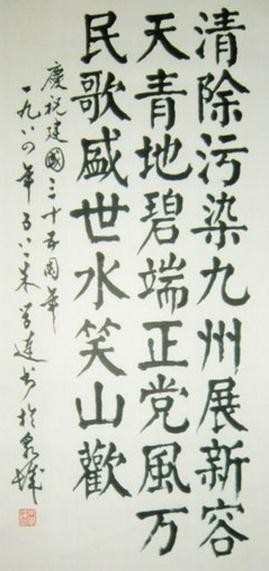 清除污染九州展新容
天青地碧端正党風万
民歌盛世水笑山歡
慶祝建國三十五周年
一九八四年朱学達书於泉城